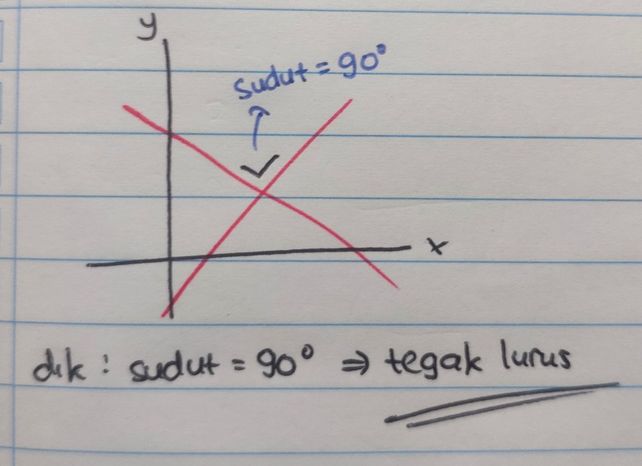 y
sudut = 90°
x
dik : sudut = 90° ⇒ tegak lurus